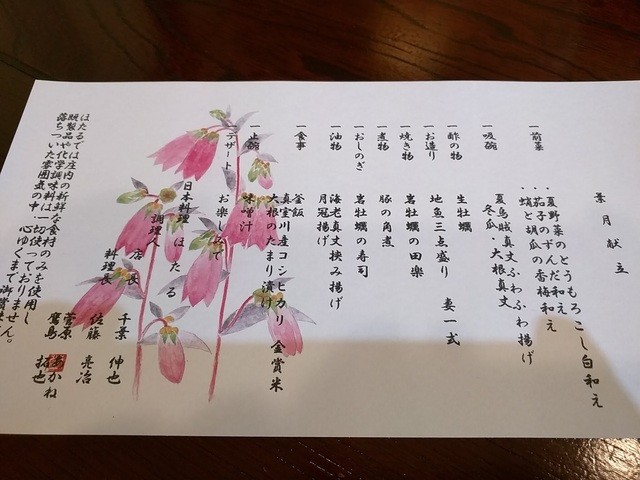 葉月献立
一前菜
・夏野菜のとうもろこし白和え
・茄子のずんだ和え
・蛸と胡瓜の香梅和え
一吸碗
夏烏賊真丈ふわふわ揚げ
冬瓜・大根真丈
一酢の物
生牡蠣
一お造り
地魚三点盛り 妻一式
一焼き物
岩牡蠣の田楽
一煮物
豚の角煮
一おしのぎ
岩牡蠣の寿司
一油物
海老真丈挟み揚げ
月冠揚げ
一食事
釜飯
真室川産コシヒカリ 金賞米
大根のたまり漬け
一止碗
味噌汁
デザート
お楽しみで
日本料理 ほたる
調理人 店長 千葉 伸也
料理長 佐藤 亮治
菅原 あかね
鷹島 拓也
ほたるでは庄内の新鮮な食材のみを使用し
既製品や化学調味料は一切使っておりません。
落ちついた雰囲気の中、心ゆくまで御賞味